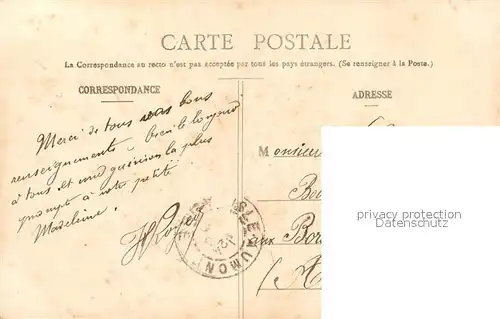 CARTE POSTALE
La Correspondance au recto n'est pas acceptée par tous les pays étrangers. (Se renseigner à la Poste.)
CORRESPONDANCE
ADRESSE
Merci de tous vos bons
renseignements. Bien le bonjour
à tous et une guérison la plus
prompte à votre petite
Madeleine.
Monsieur
aux Bor
privacy overlay
Datenschutz